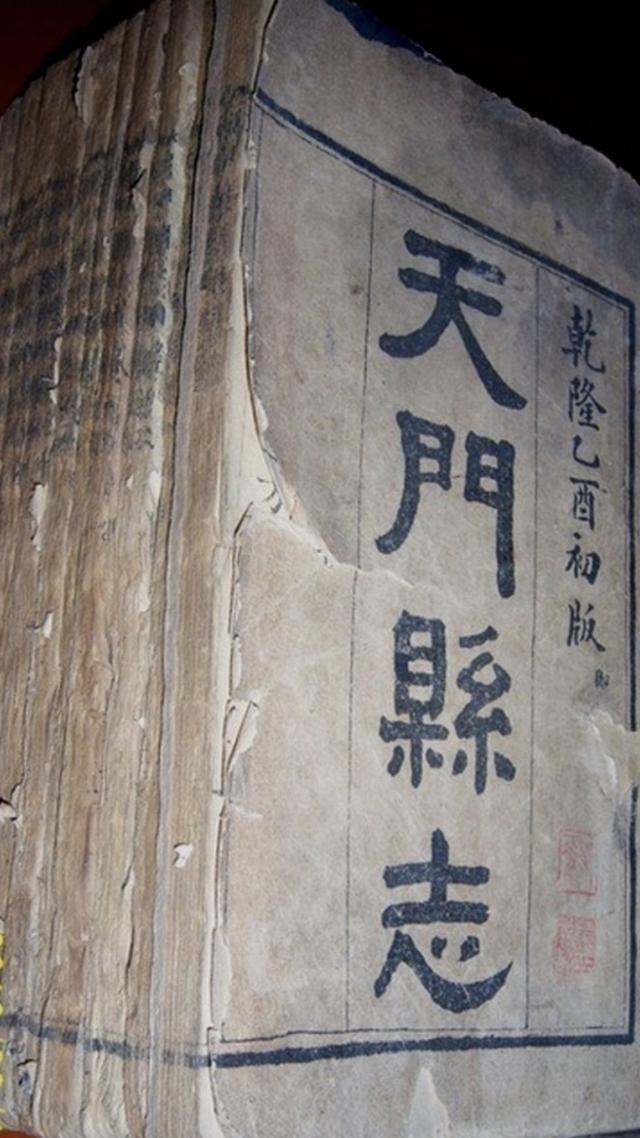 乾隆乙酉初版
天門縣志